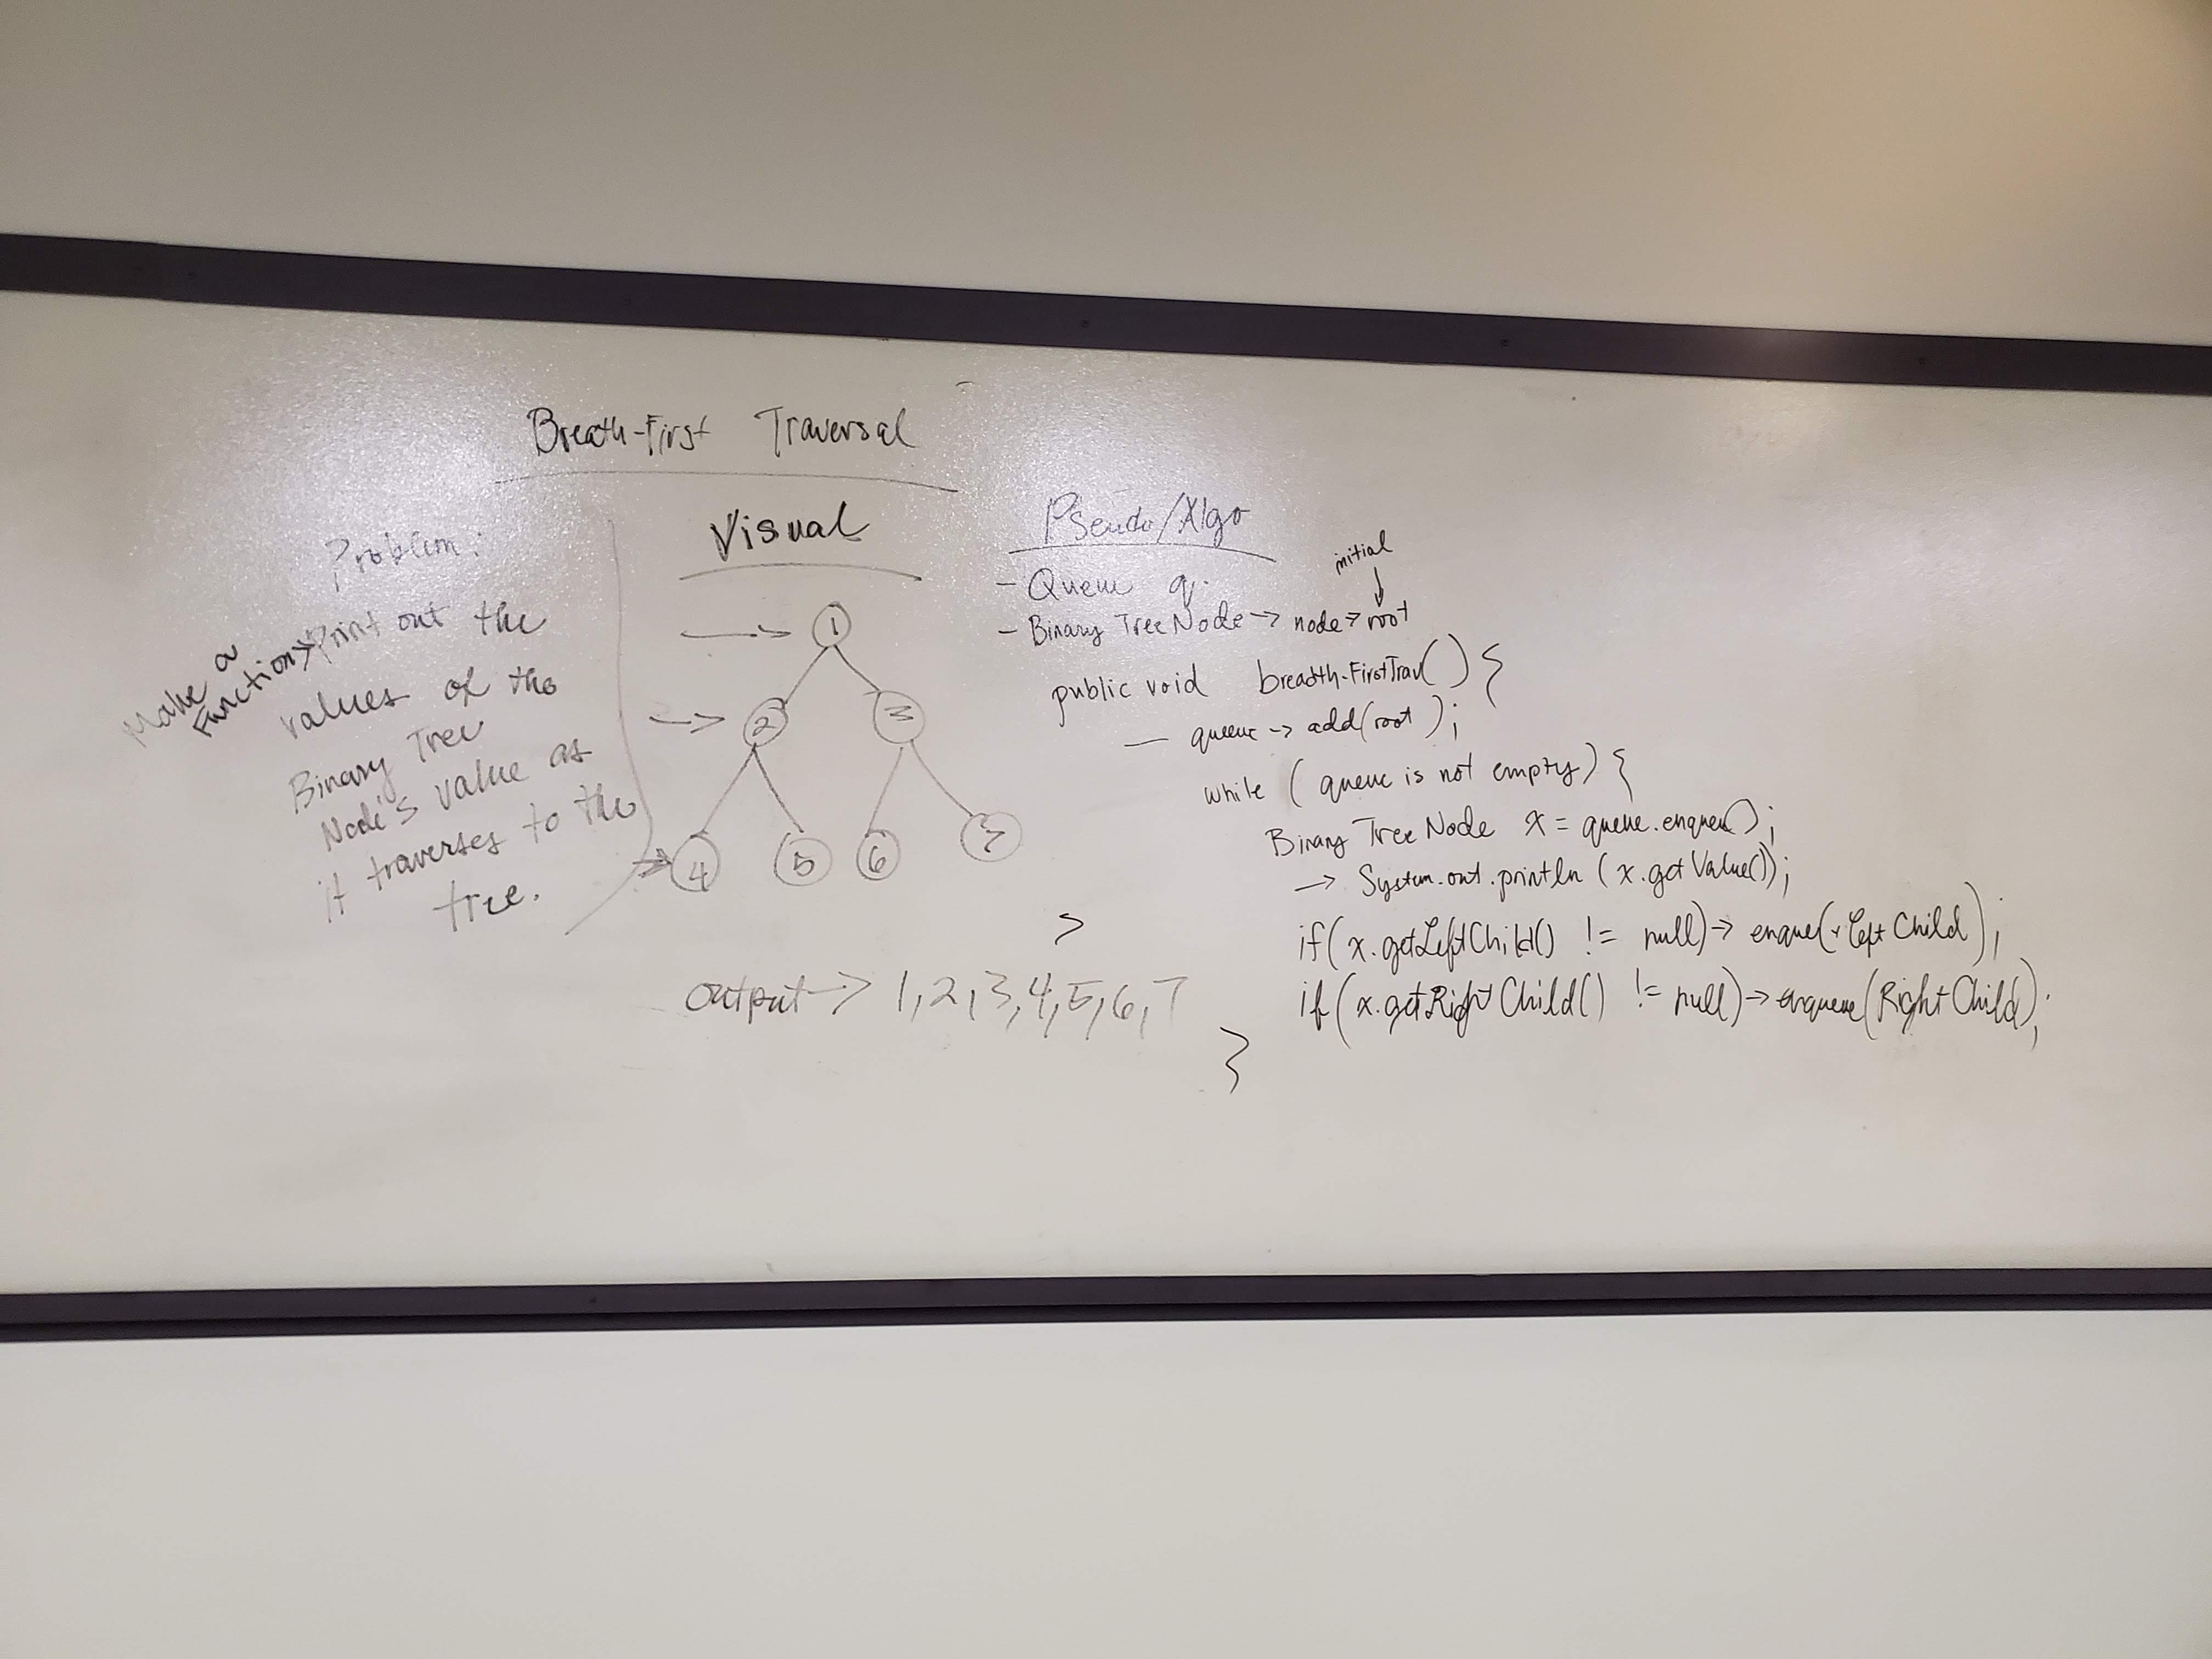 Breath-First Traversal
Problem:
Make a
Function → Print out the
values of the
Binary Tree
Node's value as
it traverses to the
tree.
Visual
1
2 3
4 5 6 7
output → 1,2,3,4,5,6,7
Pseudo/Algo
- Queue q.
initial
- Binary TreeNode → node → root
public void breadth-FirstTrav() {
— queue → add(root);
while ( queue is not empty) {
Binary Tree Node x = queue.enqueue();
→ System.out.println (x.getValue());
if(x.getLeftChild() != null) → enque( Left Child);
if(x.getRight Child() != null) → enqueue(Right Child);
}
}